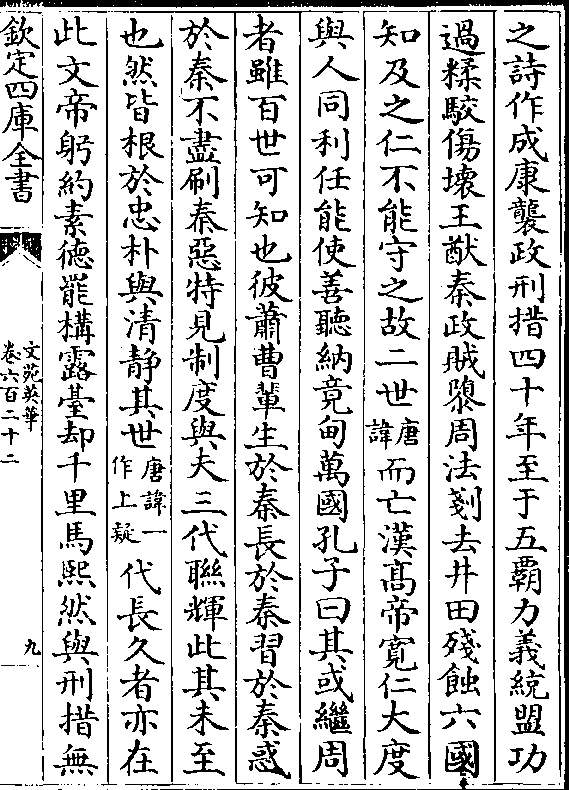 之詩作成康襲政刑措四十年至于五覇力義統盟功
過糅駮傷壊王猷秦政賊隳周法剗去井田殘蝕六國
知及之仁不能守之故二世唐諱而亡漢高帝寛仁大度
與人同利任能使善聽納竟甸萬國孔子曰其或繼周
者雖百世可知也彼蕭曹輩生於秦長於秦習於秦惑
於秦不盡刷秦惡特見制度與夫三代聯輝此其未至
也然皆根於忠朴與清静其世唐諱一作上疑代長久者亦在
此文帝躬約素徳罷構露臺却千里馬熙然與刑措無
欽定四庫全書
文苑英華
卷六百二十二
九